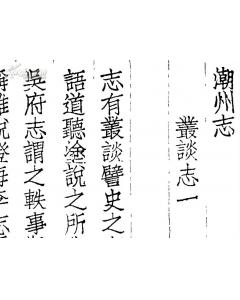 潮州志
叢談志一
志有叢談譬史之
語道聽塗說之所
吳府志謂之軼事
雜說澄海